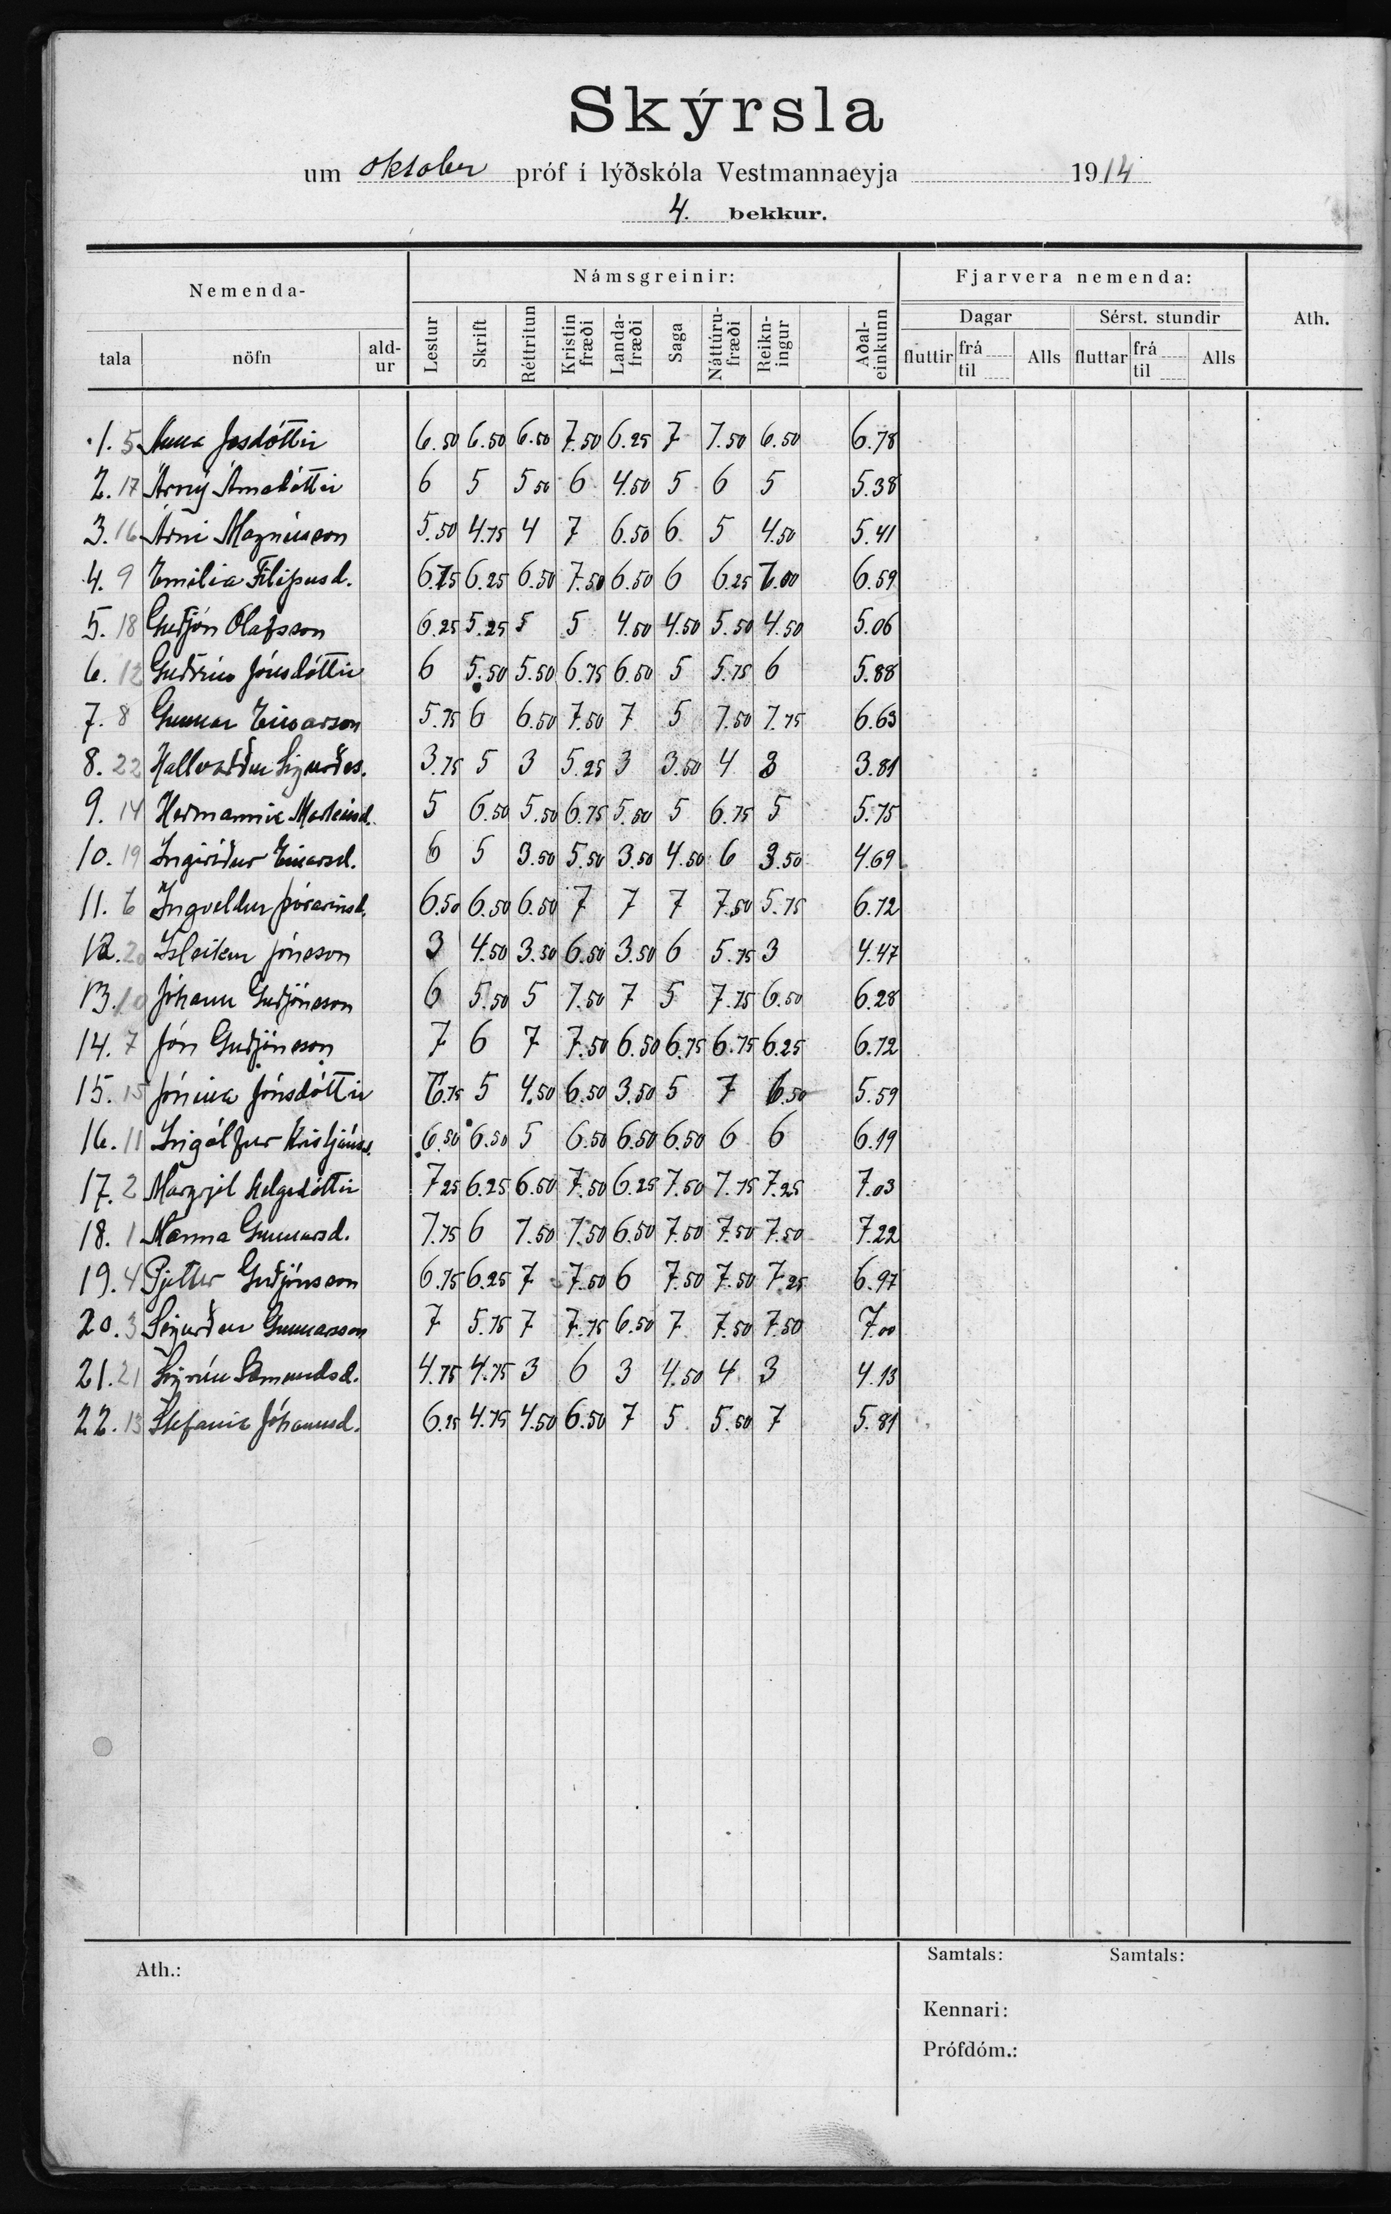 Skýrsla
um oktober próf í lýðskóla Vestmannaeyja 1914
4. bekkur.
Nemenda- Námsgreinir: Fjarvera nemenda: Ath.
tala nöfn ald-ur Lestur Skrift Réttritun Kristin fræði Landa-fræði Saga Náttúru-fræði Reikn-ingur Aðal-einkunn Dagar Sérst. stundir
fluttir frá til Alls fluttar frá til Alls
1. 5 Anna Jesdóttir 6.50 6.50 6.50 7.50 6.25 7 7.50 6.50 6.78
2. 17 Árný Árnadóttir 6 5 5.50 6 4.50 5 6 5 5.38
3. 16 Árni Magnússon 5.50 4.75 4 7 6.50 6 5 4.50 5.41
4. 9 Emilia Filipusd. 6.75 6.25 6.50 7.50 6.50 6 6.25 7.00 6.59
5. 18 Guðjón Ólafsson 6.25 5.25 5 5 4.50 4.50 5.50 4.50 5.06
6. 12 Guðrún Jónsdóttir 6 5.50 5.50 6.75 6.50 5 5.75 6 5.88
7. 8 Gunnar Einarson 5.75 6 6.50 7.50 7 5 7.50 7.75 6.63
8. 22 Hallvarður Sigurðss. 3.75 5 3 5.25 3 3.50 4 3 3.81
9. 14 Hermannia Markúsd. 5 6.50 5.50 6.75 5.50 5 6.75 5 5.75
10. 19 Ingiríður Einarsd. 6 5 3.50 5.50 3.50 4.50 6 3.50 4.69
11. 6 Ingveldur Þórarinsd. 6.50 6.50 6.50 7 7 7 7.50 5.75 6.72
12. 20 Ísleikur Jónsson 3 4.50 3.50 6.50 3.50 6 5.75 3 4.47
13. 10 Jóhann Guðjónsson 6 5.50 5 7.50 7 5 7.75 6.50 6.28
14. 7 Jón Guðjónsson 7 6 7 7.50 6.50 6.75 6.75 6.25 6.72
15. 15 Jónína Jónsdóttir 6.75 5 4.50 6.50 3.50 5 7 6.50 5.59
16. 11 Ingólfur Kristjánss. 6.50 6.50 5 6.50 6.50 6.50 6 6 6.19
17. 2 Margrjet Helgadóttir 7.25 6.25 6.50 7.50 6.25 7.50 7.75 7.25 7.03
18. 1 Nanna Gunnarsd. 7.75 6 7.50 7.50 6.50 7.50 7.50 7.50 7.22
19. 4 Pjetur Guðjónsson 6.75 6.25 7 7.50 6 7.50 7.50 7.25 6.97
20. 3 Sigurður Gunnarsson 7 5.75 7 7.75 6.50 7 7.50 7.50 7.00
21. 21 Sigrún Sæmundsd. 4.75 4.75 3 6 3 4.50 4 3 4.13
22. 13 Stefania Jóhannsd. 6.25 4.75 4.50 6.50 7 5 5.50 7 5.81
Ath.: Samtals: Samtals:
Kennari:
Prófdóm.: